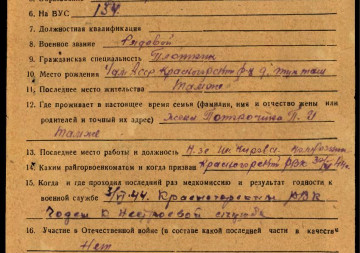 6. На ВУС 134
7. Должностная квалификация
8. Военное звание Рядовой
9. Гражданская специальность Плотник
10. Место рождения Удм. АССР Красногорский р-н д.
11. Последнее место жительства
12. Где проживает в настоящее время семья (фамилия, имя и отчество жены или
родителей и точный их адрес) жена П. И
13. Последнее место работы и должность к-з им. Кирова. колхозник
14. Каким райгорвоенкоматом и когда призван Красногорский РВК
15. Когда и где проходил последний раз медкомиссию и результат годности к
военной службе 3/VI 44. Красногорским РВК
Годен к нестроевой службе
16. Участие в Отечественной войне (в составе какой последней части в качестве
Нет